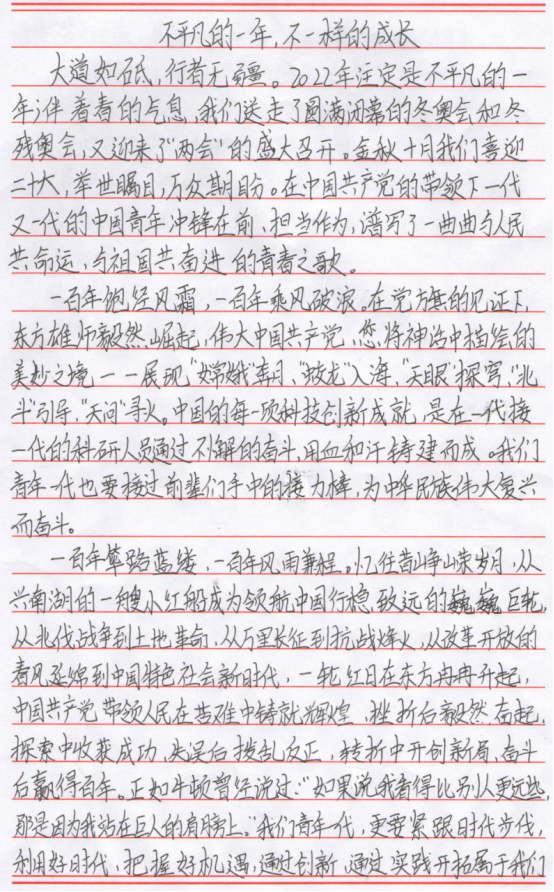 不平凡的一年,不一样的成长
大道如砥,行者无疆。2022年注定是不平凡的一
年,伴着春的气息,我们送走了圆满闭幕的冬奥会和冬
残奥会,又迎来了“两会”的盛大召开。金秋十月我们喜迎
二十大,举世瞩目,万众期盼。在中国共产党的带领下一代
又一代的中国青年冲锋在前、担当作为,谱写了一曲曲与人民
共命运,与祖国共奋进的青春之歌。
一百年饱经风霜,一百年乘风破浪。在党旗的见证下,
东方雄师毅然崛起,伟大中国共产党,您将神话中描绘的
美妙之境一一展现,“嫦娥”奔月、“蛟龙”入海、“天眼”探穹、“北
斗”引导、“天问”寻火。中国的每一项科技创新成就,是在一代接
一代的科研人员通过不懈的奋斗,用血和汗铸建而成。我们
青年一代也要接过前辈们手中的接力棒,为中华民族伟大复兴
而奋斗。
一百年筚路蓝缕,一百年风雨兼程。忆往昔峥嵘岁月,从
兴南湖的一艘小红船成为领航中国行稳致远的巍巍巨轮,
从北伐战争到土地革命,从万里长征到抗战烽火,从改革开放的
春风延绵到中国特色社会新时代,一轮红日在东方冉冉升起,
中国共产党带领人民在苦难中铸就辉煌,挫折后毅然奋起,
探索中收获成功,失误后拨乱反正,转折中开创新局,奋斗
后赢得百年。正如牛顿曾经说过:“如果说我看得比别人更远些,
那是因为我站在巨人的肩膀上。”我们青年一代,更要紧跟时代步伐,
利用好时代,把握好机遇,通过创新,通过实践开拓属于我们